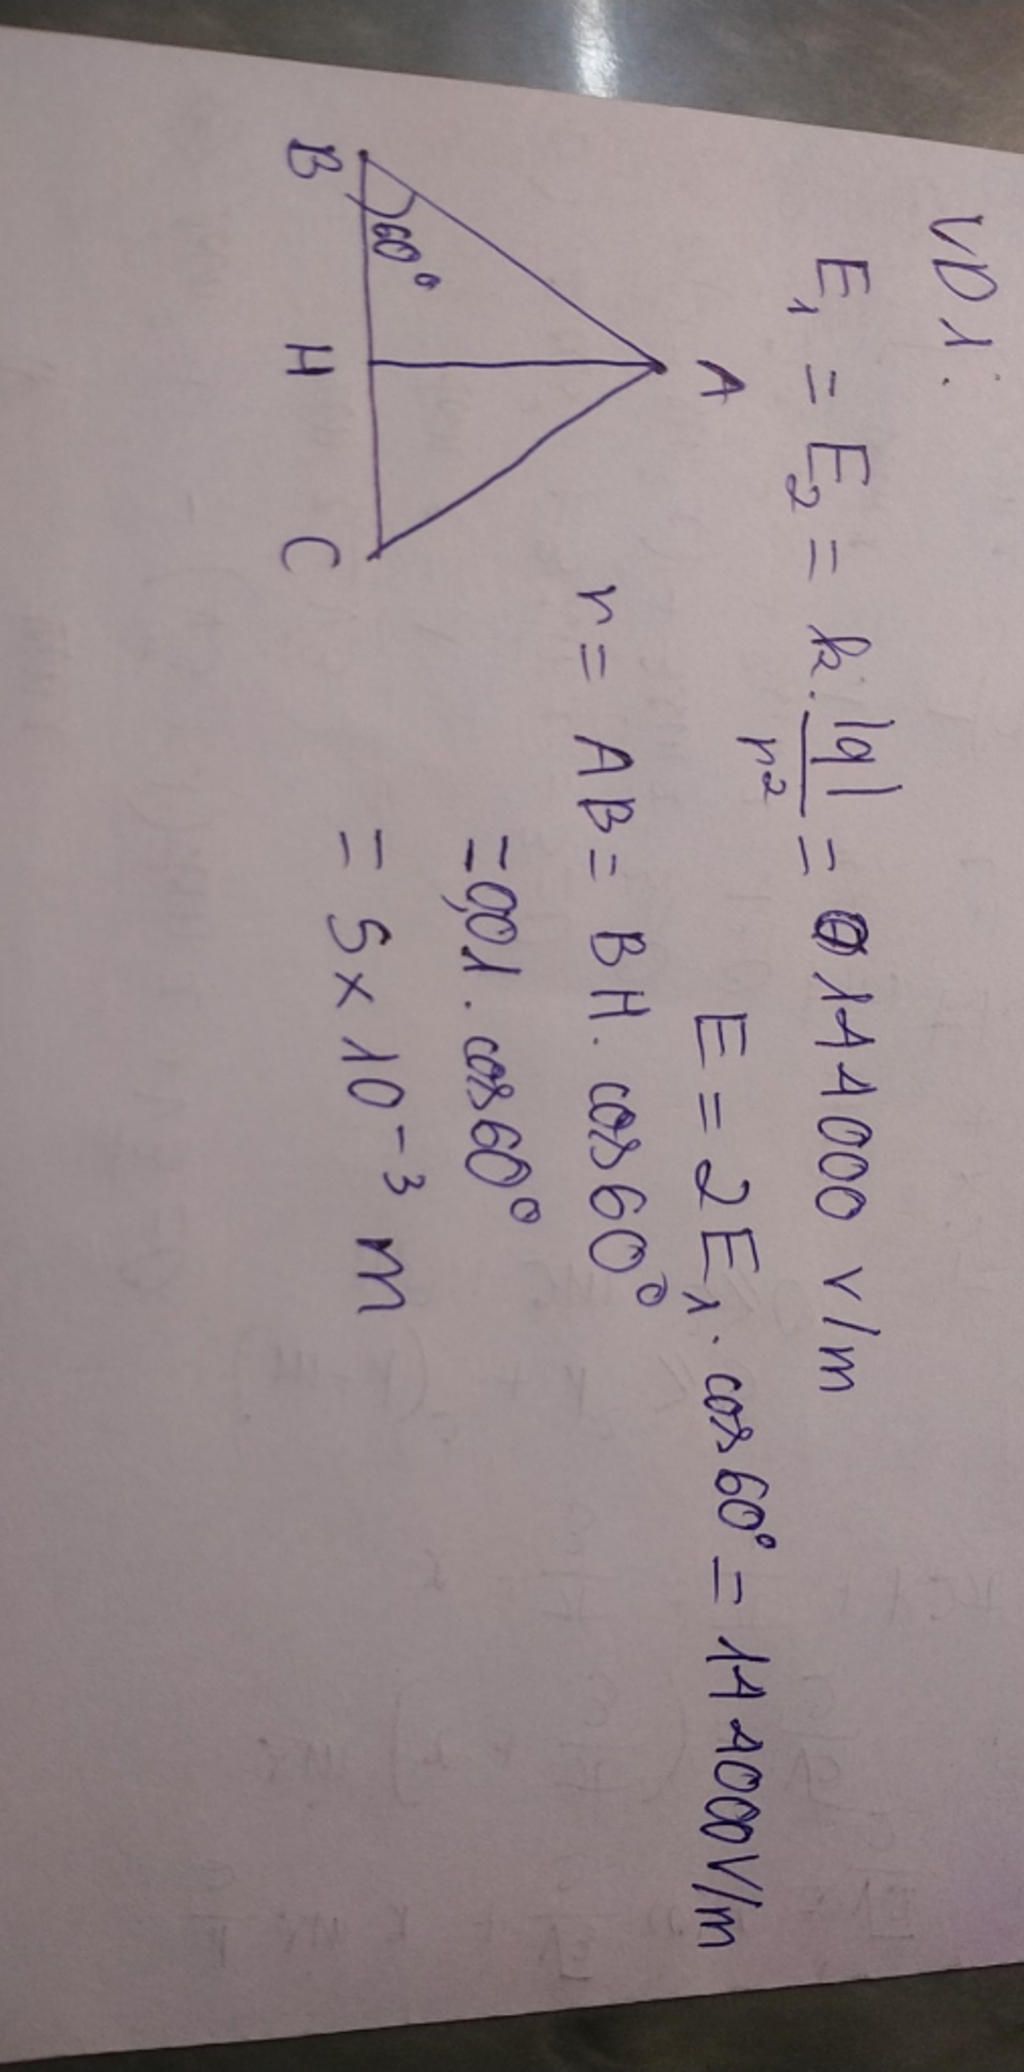 VD1:
E₁ = E₂ = k.|q|/r² = 144000 V/m
E = 2E₁.cos60° = 144000V/m
A
B
60°
H
C
r = AB = BH.cos60°
=0,01.cos60°
= 5×10⁻³ m